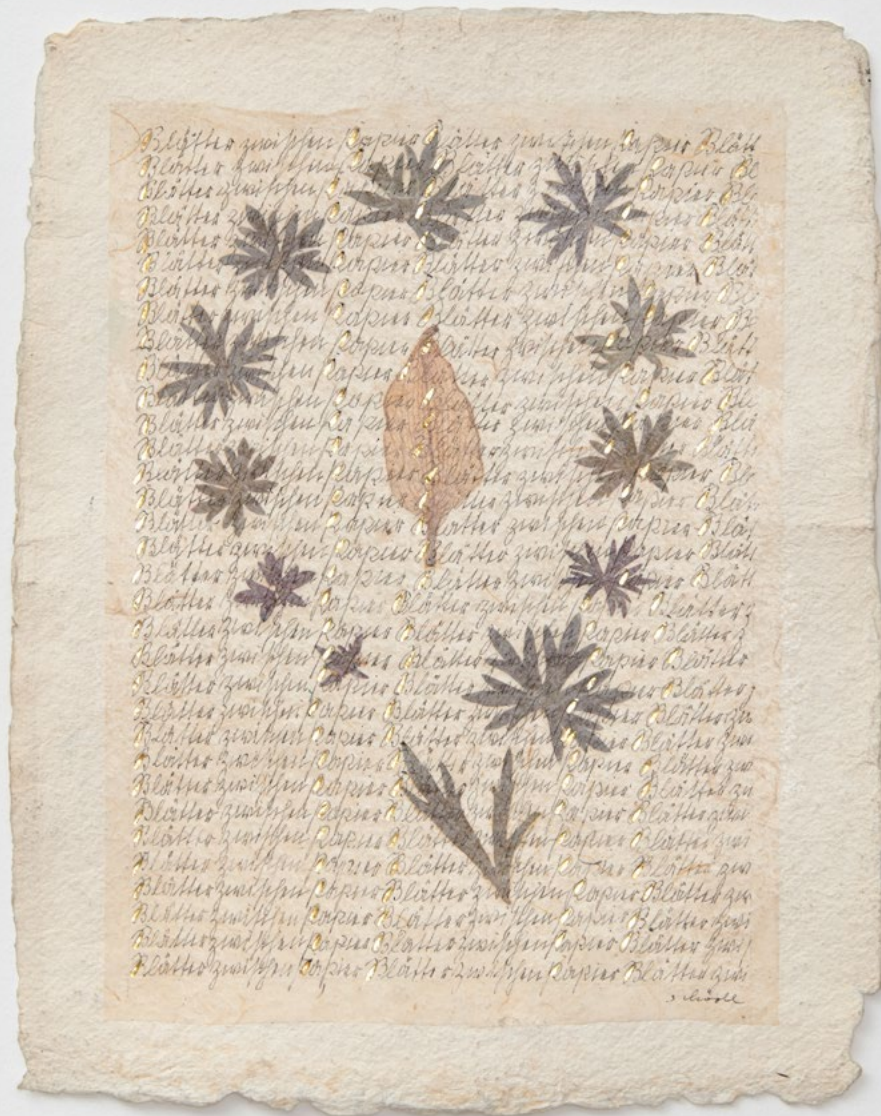 Blätter zwischen Papier Blätter zwischen Papier Blätt
Blätter zwischen Papier Blätter zwischen Papier Bl
Blätter zwischen Papier Blätter zwischen Papier Bl
Blätter zwischen Papier Blätter zwischen Papier Blät
Blätter zwischen Papier Blätter zwischen Papier Blät
Blätter zwischen Papier Blätter zwischen Papier Blät
Blätter zwischen Papier Blätter zwischen Papier Bl
Blätter zwischen Papier Blätter zwischen Papier B
Blätter zwischen Papier Blätter zwischen Papier Blätt
Blätter zwischen Papier Blätter zwischen Papier Blät
Blätter zwischen Papier Blätter zwischen Papier Blä
Blätter zwischen Papier Blätter zwischen Papier Blä
Blätter zwischen Papier Blätter zwischen Papier Blätt
Blätter zwischen Papier Blätter zwischen Papier Bl
Blätter zwischen Papier Blätter zwischen Papier Blät
Blätter zwischen Papier Blätter zwischen Papier Blät
Blätter zwischen Papier Blätter zwischen Papier Blätt
Blätter zwischen Papier Blätter zwischen Papier Blätt
Blätter zwischen Papier Blätter zwischen Papier Blätter z
Blätter zwischen Papier Blätter zwischen Papier Blätter z
Blätter zwischen Papier Blätter zwischen Papier Blätter
Blätter zwischen Papier Blätter zwischen Papier Blätter z
Blätter zwischen Papier Blätter zwischen Papier Blätter zw
Blätter zwischen Papier Blätter zwischen Papier Blätter zwi
Blätter zwischen Papier Blätter zwischen Papier Blätter zwi
Blätter zwischen Papier Blätter zwischen Papier Blätter zw
Blätter zwischen Papier Blätter zwischen Papier Blätter zwi
Blätter zwischen Papier Blätter zwischen Papier Blätter zw
Blätter zwischen Papier Blätter zwischen Papier Blätter zw
Blätter zwischen Papier Blätter zwischen Papier Blätter zwi
Blätter zwischen Papier Blätter zwischen Papier Blätter zwi
Blätter zwischen Papier Blätter zwischen Papier Blätter zwi
Blätter zwischen Papier Blätter zwischen Papier Blätter zwi